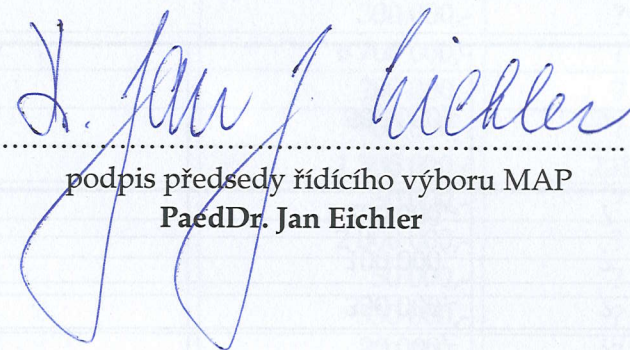 Jan Eichler
podpis předsedy řídícího výboru MAP
PaedDr. Jan Eichler